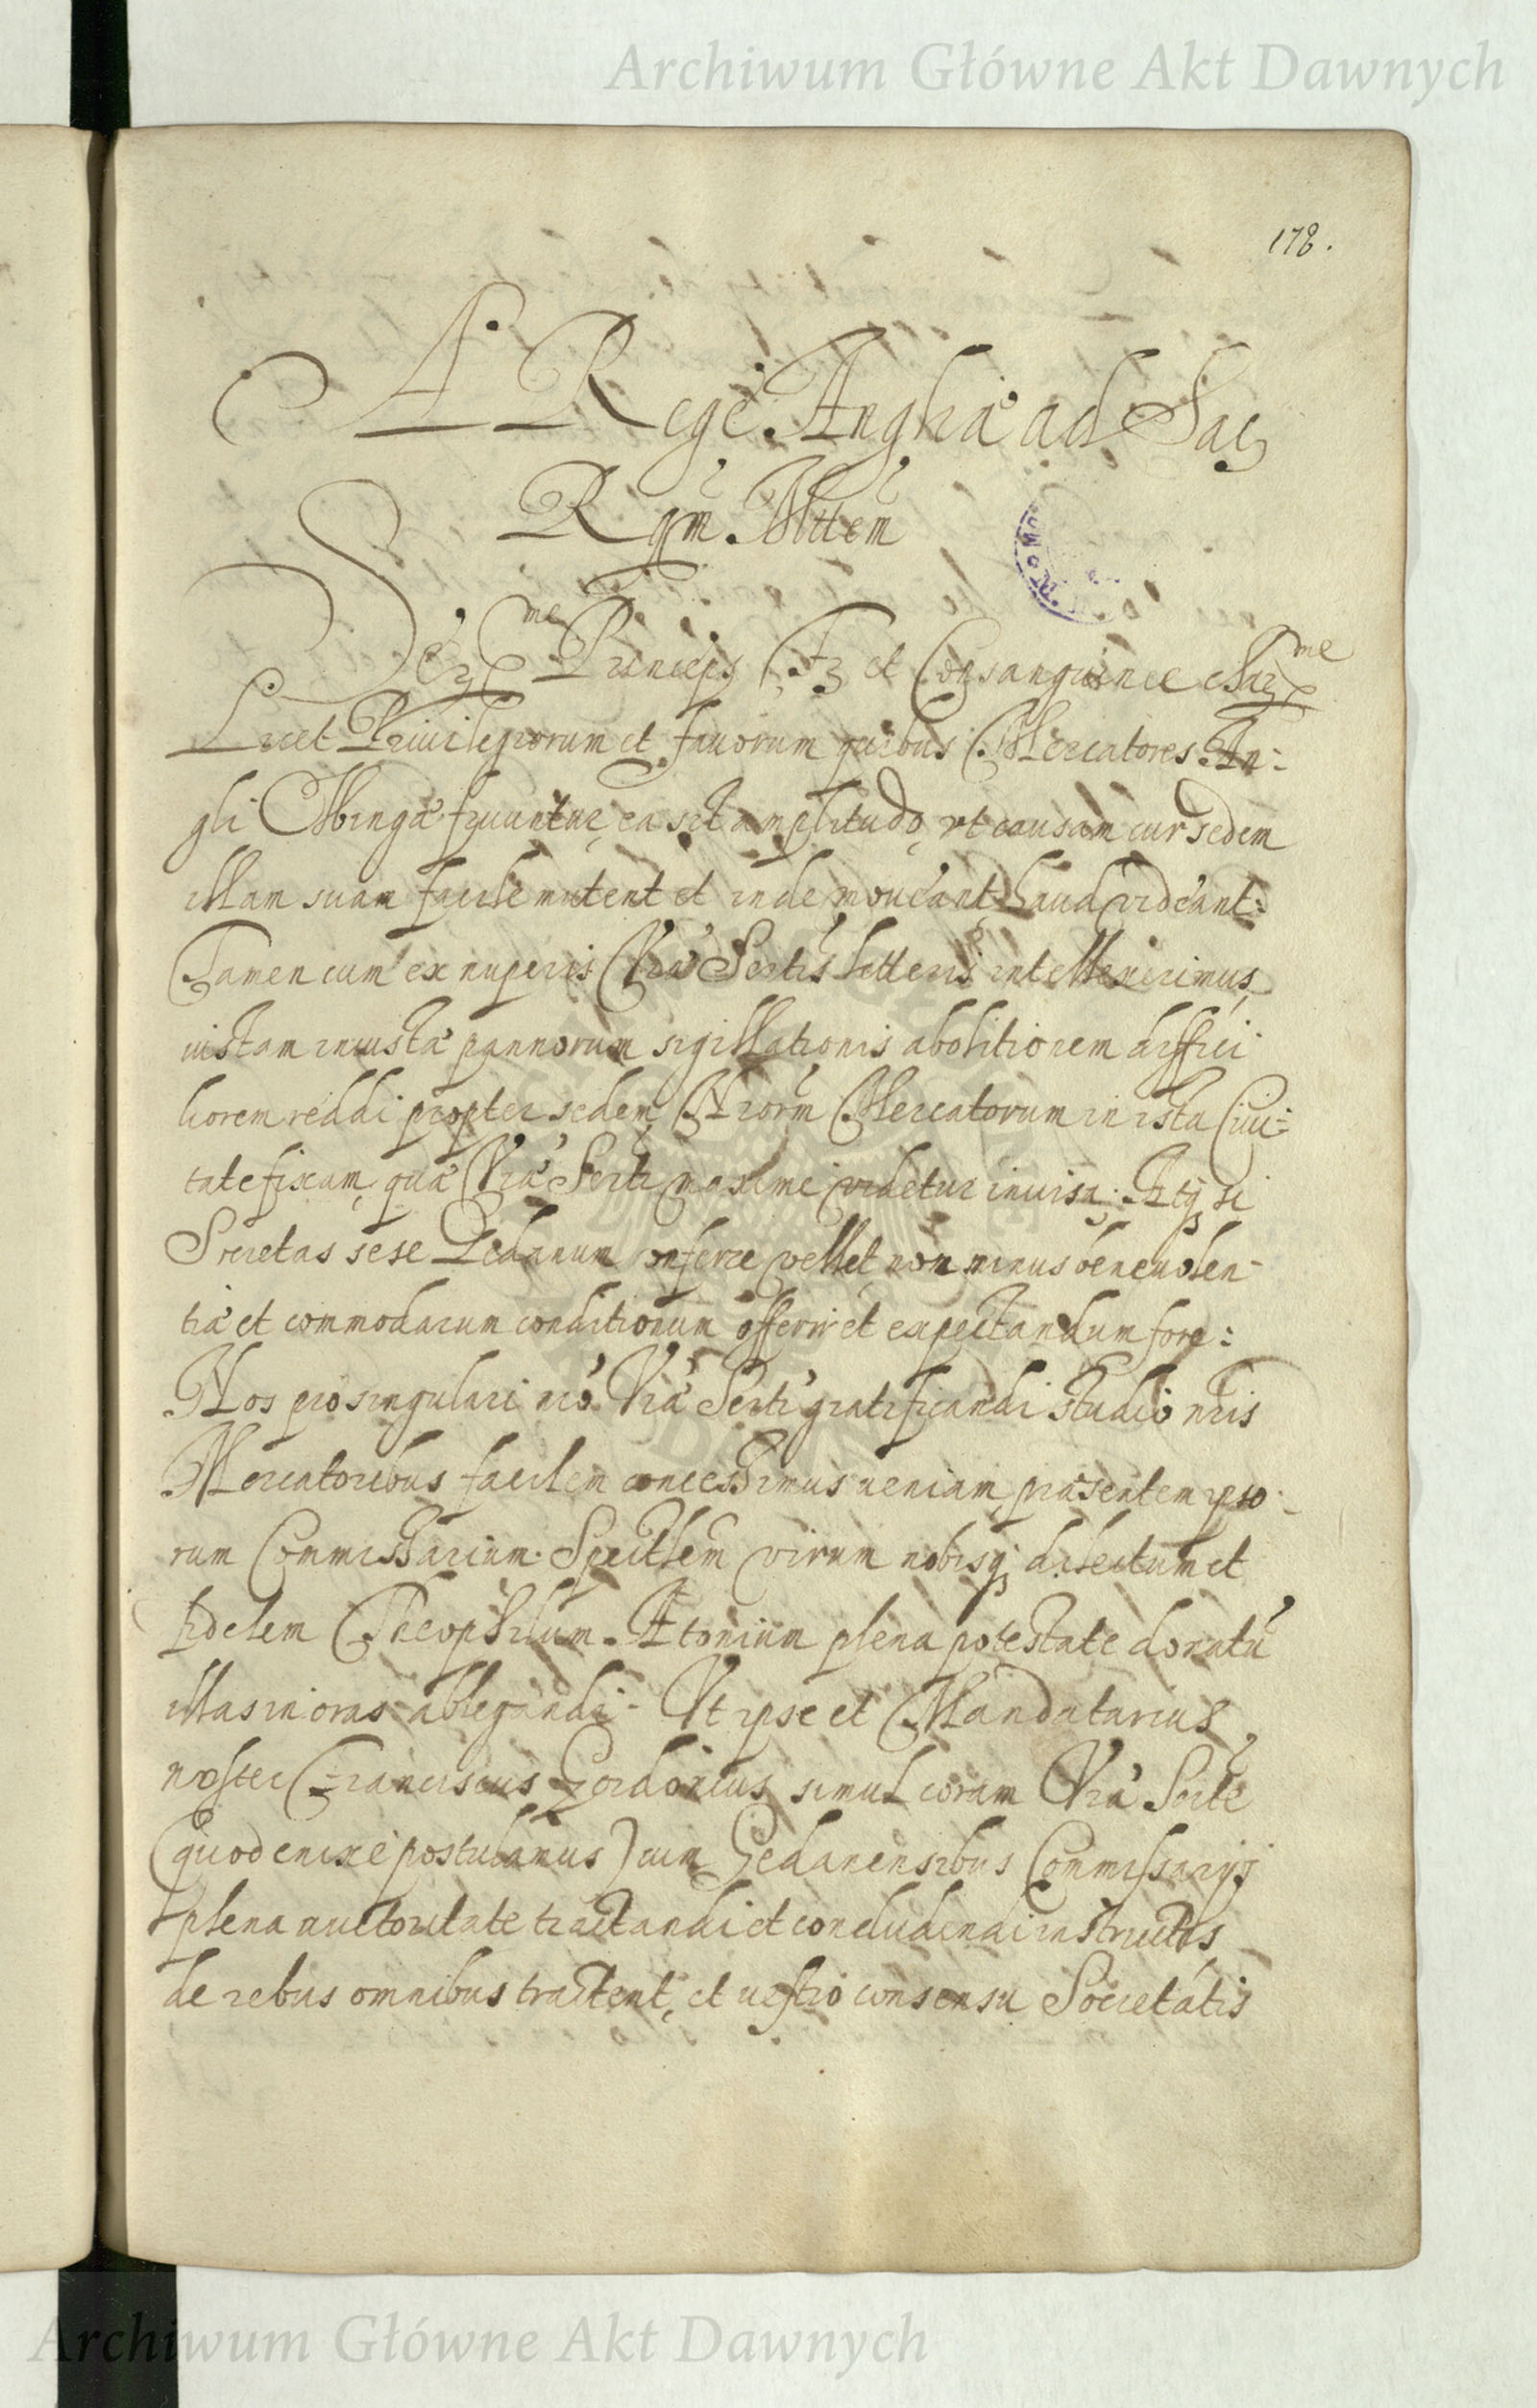 Archiwum Główne Akt Dawnych
178.
A Rege Angliæ ad Sac
Rgm Mttem
Ser^me Princeps Fr et Consanguinee Char^me
Licet Priuilegiorum et fauorum quibus Mercatores An:
gli Elbingæ fruuntur, ea sit amplitudo, vt causam cur sedem
illam suam facile mutent et inde moueant, haud videant:
Tamen cum ex nuperis Vræ Sertis litteris intellexerimus
iustam iniustæ pannorum sigillationis abolitionem diffici
liorem reddi propter sedem Nrorm Mercatorum in ista Ciui:
tate fixam, quæ Vræ Serti maxime videtur inuisa: Atq si
Societas sese Gedanum conferre vellet non minus beneuolen-
tiæ et commodarum conditionum offerri et expectandum fore:
Nos pro singulari nro Vræ Serti gratificandi studio nris
Mercatoribus facilem concessimus ueniam præsentem ipso-
rum Commissarium Spectlem virum nobisq dilectum et
fidelem Theophilum Etonium plena potestate donatū
illas in oras ablegandi. Vt ipse et Mandatarius
noster Franciscus Gordonius simul coram Vra Serte
(quod enixe postulamus) cum Gedanensibus Commissarijs
plena auctoritate tractandi et concludendi instructis
de rebus omnibus tractent, et uestro consensu Societatis
Archiwum Główne Akt Dawnych